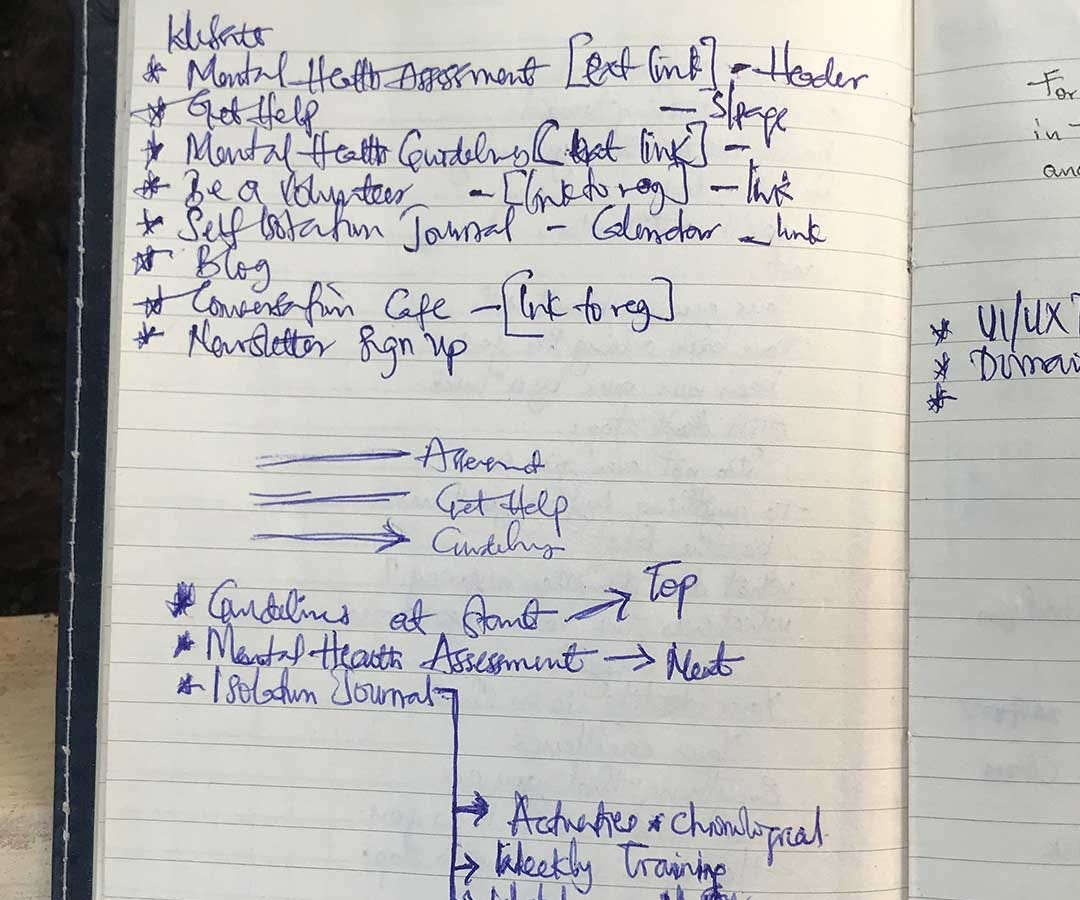 Website
* Mental Health Assessment [ext link] - Header
* Get Help — S/page
* Mental Health Guidelines [ext link] -
* Be a Volunteer - [link to reg] - link
* Self Isolation Journal - Calendar - link
* Blog
* Conversation Cafe - [link to reg]
* Newsletter Sign up
Assessment
Get Help
→ Guidelines
* Guidelines at Start → Top
* Mental Health Assessment → Next
* Isolation Journal
→ Activities * chronological
→ Weekly Training
For
in
and
* UI/UX
* Domai
*